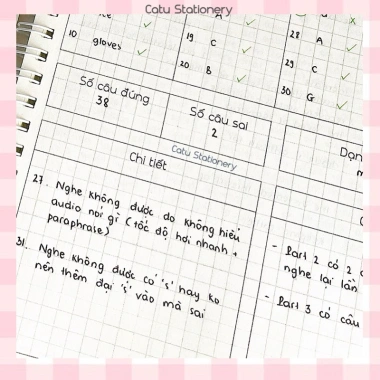 Catu Stationery
A
10 gloves ✓
19 C ✓
20 B ✓
28 A ✓
29 C ✓
30 G ✓
Số câu đúng
38
Số câu sai
2
Catu Stationery
Chi tiết
27. Nghe không được do không hiểu
audio nói gì (tốc độ hơi nhanh +
paraphrase)
31. Nghe không được có 's' hay ko
nên thêm đại 's' vào mà sai
- Part 2 có 2
nghe lại lần
- Part 3 có câu